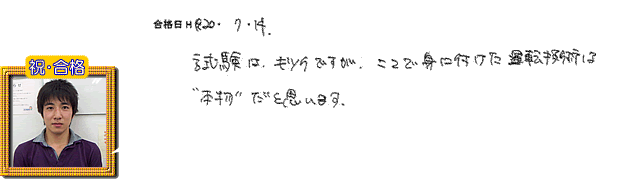 合格日 H 20・7・14.
祝・合格
試験は、キツイですが、ここで身に付けた運転技術は
"本物"だと思います。